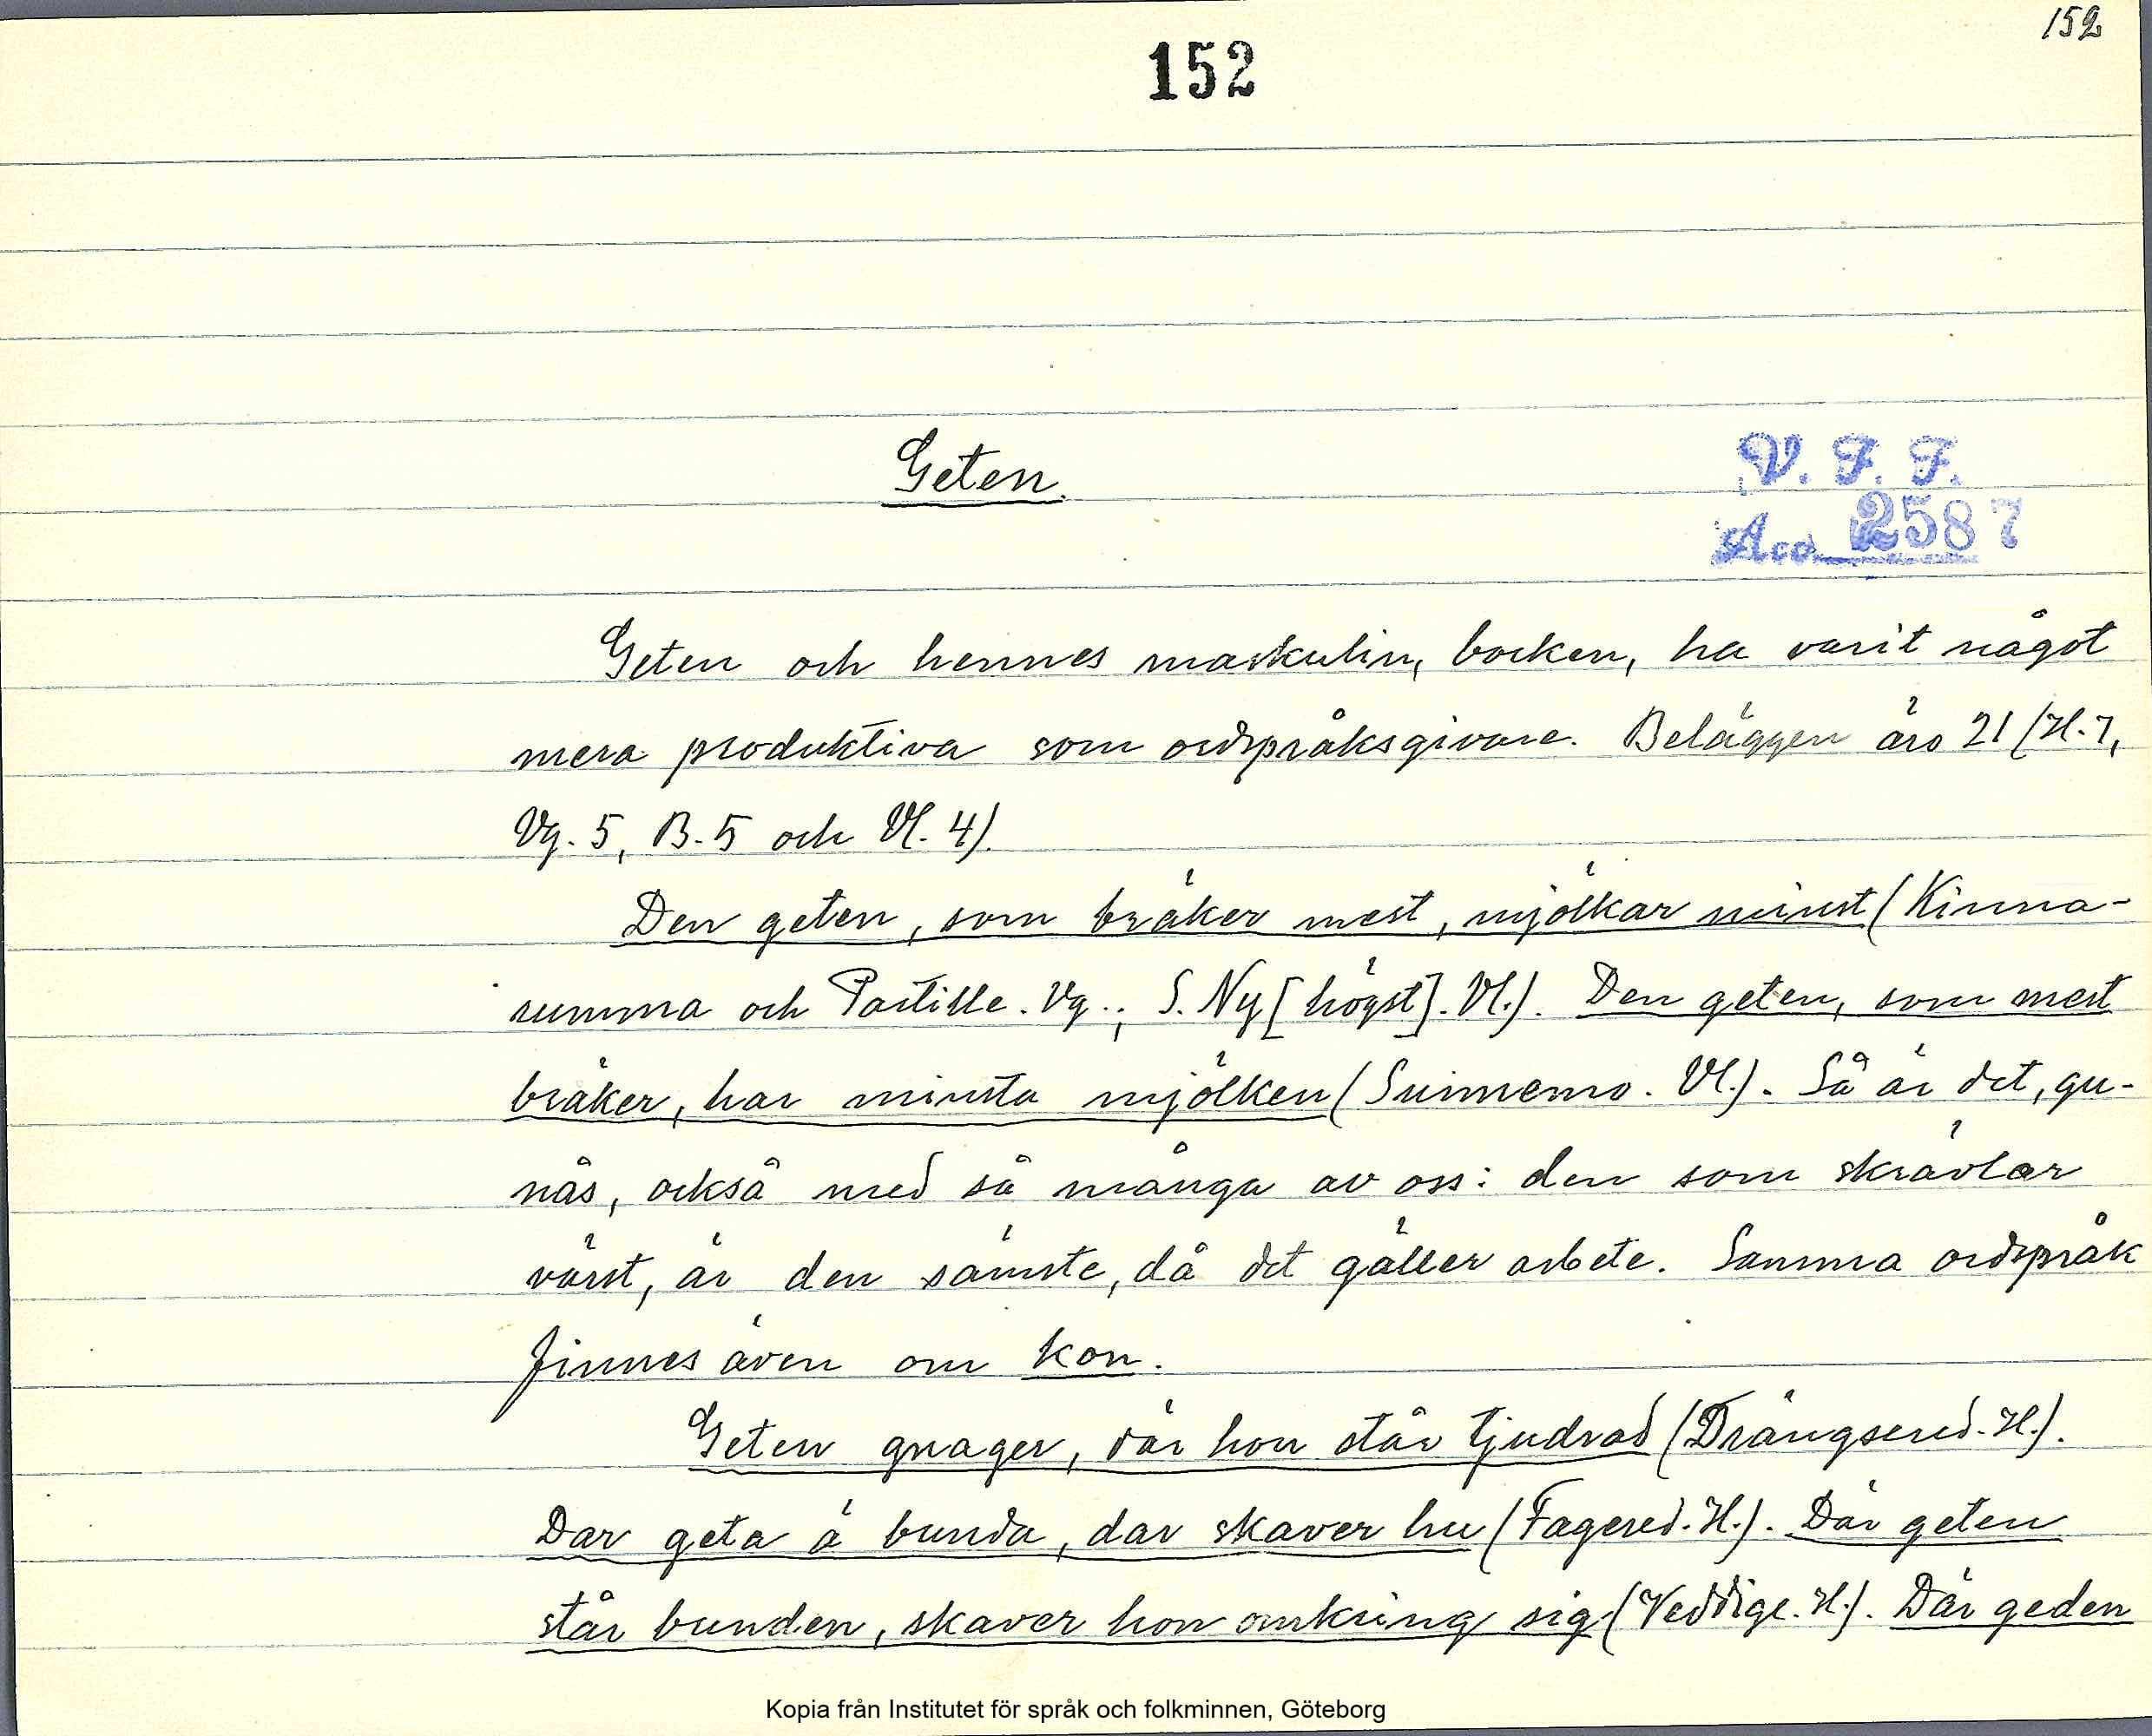 152
152
Geten.
V. F. F.
Acc. 2587
Geten och hennes maskulin, bocken, ha varit något
mera produktiva som ordspråksgivare. Beläggen äro 21 (H. 7,
Vg. 5, B. 5 och Vl. 4).
Den geten, som bräker mest, mjölkar minst (Kinna-
rumma och Partille. Vg.; S. Ny [högst]. Vl.). Den geten, som mest
bräker, har minsta mjölken (Sunnemo. Vl.). Så är det, gu-
nås, också med så många av oss: den som skrävlar
värst, är den sämste, då det gäller arbete. Samma ordspråk
finnes även om kon.
Geten gnager, där hon står tjudrad (Drängsered. H.).
Dar geta ä bunda, dar skaver hu (Fagered. H.). Där geten
står bunden, skaver hon omkring sig (Veddige. H.). Där geden
Kopia från Institutet för språk och folkminnen, Göteborg